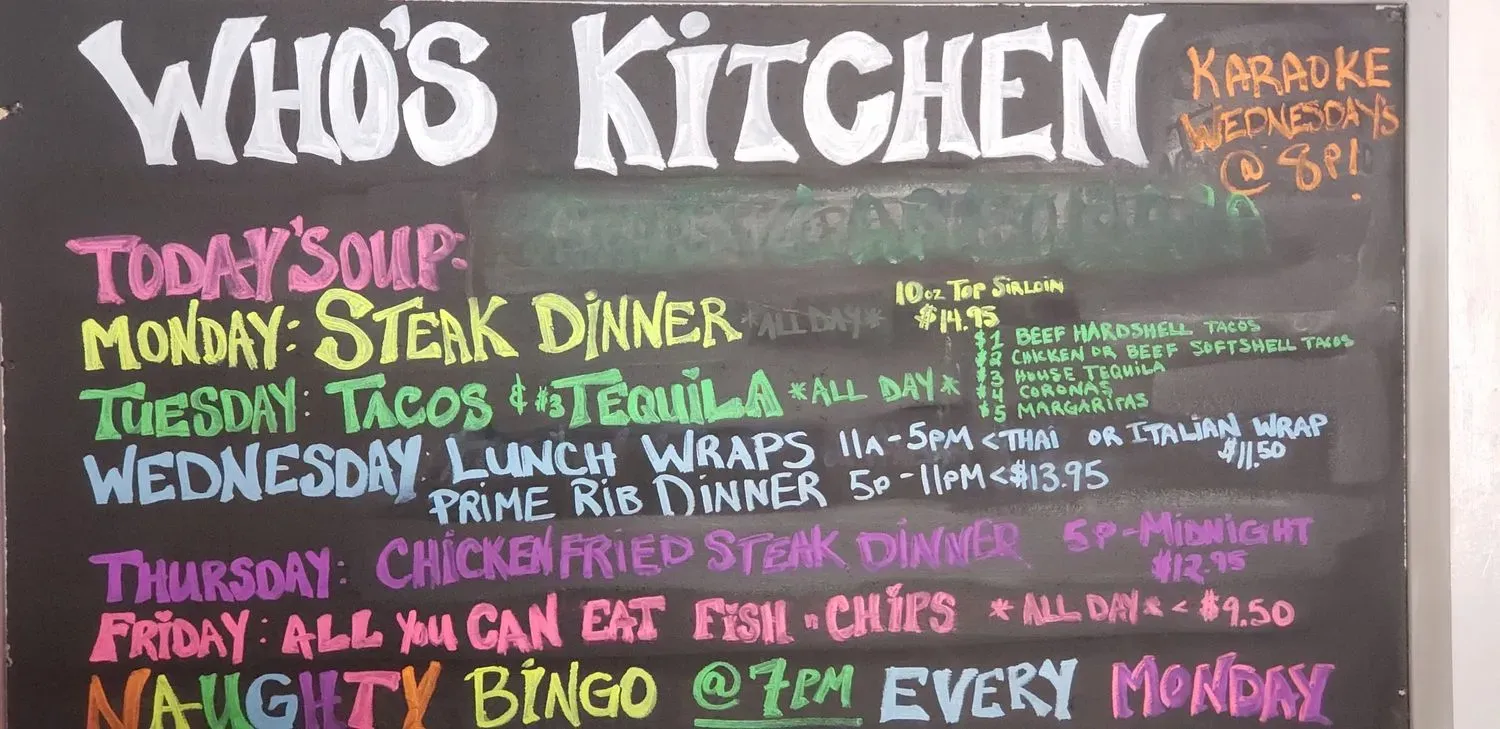 WHO'S KITCHEN
KARAOKE
WEDNESDAY'S
@ 8P!
TODAY'S OUP:
MONDAY: STEAK DINNER *ALL DAY*
10oz TOP SIRLOIN
$14.95
TUESDAY: TACOS & #3 TEQUILA *ALL DAY*
$1 BEEF HARDSHELL TACOS
$2 CHICKEN OR BEEF SOFTSHELL TACOS
$3 HOUSE TEQUILA
$4 CORONAS
$5 MARGARITAS
WEDNESDAY: LUNCH WRAPS 11A-5PM <THAI OR ITALIAN WRAP
$11.50
PRIME RIB DINNER 5P-11PM <$13.95
THURSDAY: CHICKEN FRIED STEAK DINNER 5P-MIDNIGHT
$12.95
FRIDAY: ALL YOU CAN EAT FISH "N CHIPS *ALL DAY* < $9.50
NAUGHTY BINGO @ 7PM EVERY MONDAY